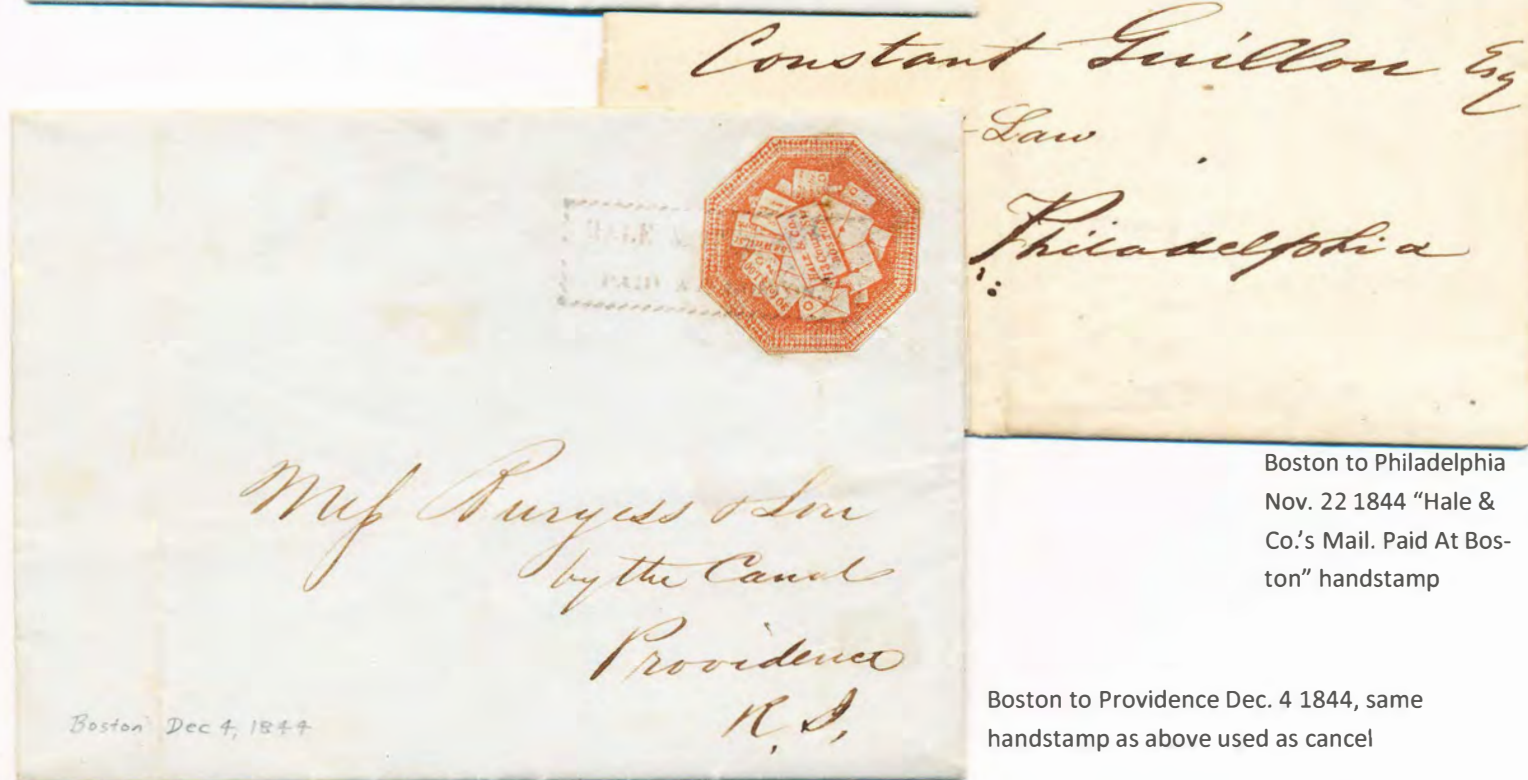 Constant Guillou Esq
-Law
Philadelphia
HALE &
PAID A
HALE & Co
13 COURT ST
BOSTON
Mess Burgess & Son
by the Canal
Providence
R. I,
Boston Dec 4, 1844
Boston to Philadelphia
Nov. 22 1844 “Hale &
Co.'s Mail. Paid At Bos-
ton” handstamp
Boston to Providence Dec. 4 1844, same
handstamp as above used as cancel